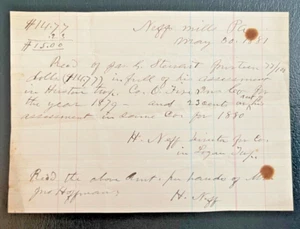 $14.77
$15.00
Neffs Mills Pa
May 20 1881
Recd of Jas C Stewart fourteen 77/100
Dolls ($14.77) in full of his assessment
in Huston twp. Co. & Fire Ins Co for
the year 1879 - and 23 cents on his
assessment in same Co. for 1880
H. Neff director for Co.
in Logan Twp.
Recd the above amt. per hands of
Jno Hoffman
H. Neff